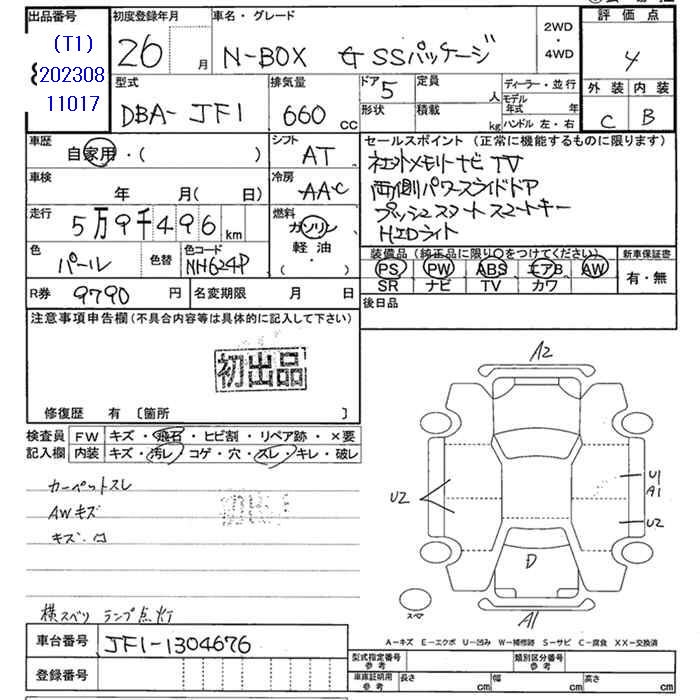 出品番号
(T1)
202308
11017
初度登録年月
26 月
車名・グレード
N-BOX G SSパッケージ
2WD
・
4WD
評価点
4
外装 内装
C B
型式
DBA- JF1
排気量
660 cc
ドア 5
形状
定員 人
積載 kg
ディーラー・並行
モデル年式 年
ハンドル 左・右
車歴
自家用・( )
シフト
AT
車検
年 月( 日)
冷房
AAC
走行
5万9千496 km
燃料
ガソリン
軽油
・( )
色
パール
色替
色コード
NH624P
R券 9790 円
名変期限 月 日
セールスポイント (正常に機能するものに限ります)
社外メモリナビ TV
両側パワースライドドア
プッシュスタート スマートキー
HIDライト
装備品 (純正品に限り○をつけてください)
PS PW ABS エアB AW
SR ナビ TV カワ
新車保証書
有・無
後日品
注意事項申告欄(不具合内容等は具体的に記入して下さい)
初出品
修復歴 有 〔箇所 〕
検査員記入欄
FW キズ・飛石・ヒビ割・リペア跡・×要
内装 キズ・汚レ・コゲ・穴・スレ・キレ・破レ
カーペットスレ
AWキズ
キズ・凹
横スベリ ランプ点灯
A2
U2
U1
A1
U2
D
スペア
A1
A-キズ E-エクボ U-凹み W-補修跡 S-サビ C-腐食 XX-交換済
車台番号 JF1-1304676
登録番号
型式指定番号 参考
類別区分番号 参考
車庫証明用 参考
長さ cm
幅 cm
高さ cm